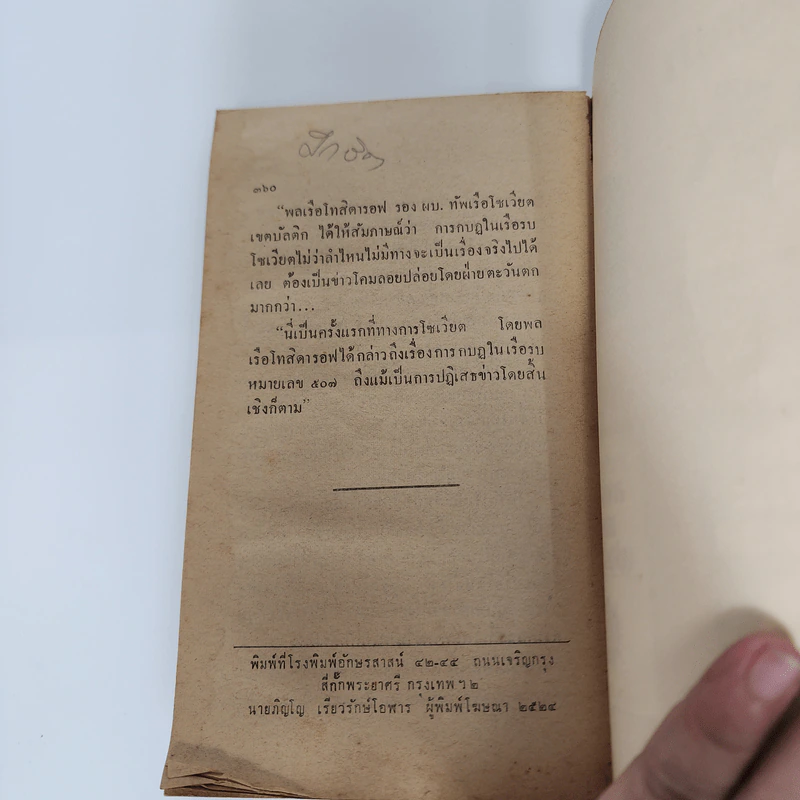 ๓๖๐
“พลเรือโทสิดารอฟ รอง ผบ. ทัพเรือโซเวียต
เขตบัลติก ได้ให้สัมภาษณ์ว่า การกบฏในเรือรบ
โซเวียตไม่ว่าลำไหนไม่มีทางจะเป็นเรื่องจริงไปได้
เลย ต้องเป็นข่าวโคมลอยปล่อยโดยฝ่ายตะวันตก
มากกว่า...
“นี่เป็นครั้งแรกที่ทางการโซเวียต โดยพล
เรือโทสิดารอฟได้กล่าวถึงเรื่องการกบฏในเรือรบ
หมายเลข ๕๐๗ ถึงแม้เป็นการปฏิเสธข่าวโดยสิ้น
เชิงก็ตาม”
พิมพ์ที่โรงพิมพ์อักษรสาสน์ ๔๒-๔๕ ถนนเจริญกรุง
สี่กั๊กพระยาศรี กรุงเทพ ฯ ๒
นายภิญโญ เรียวรักษ์โอฬาร ผู้พิมพ์โฆษณา ๒๕๒๔